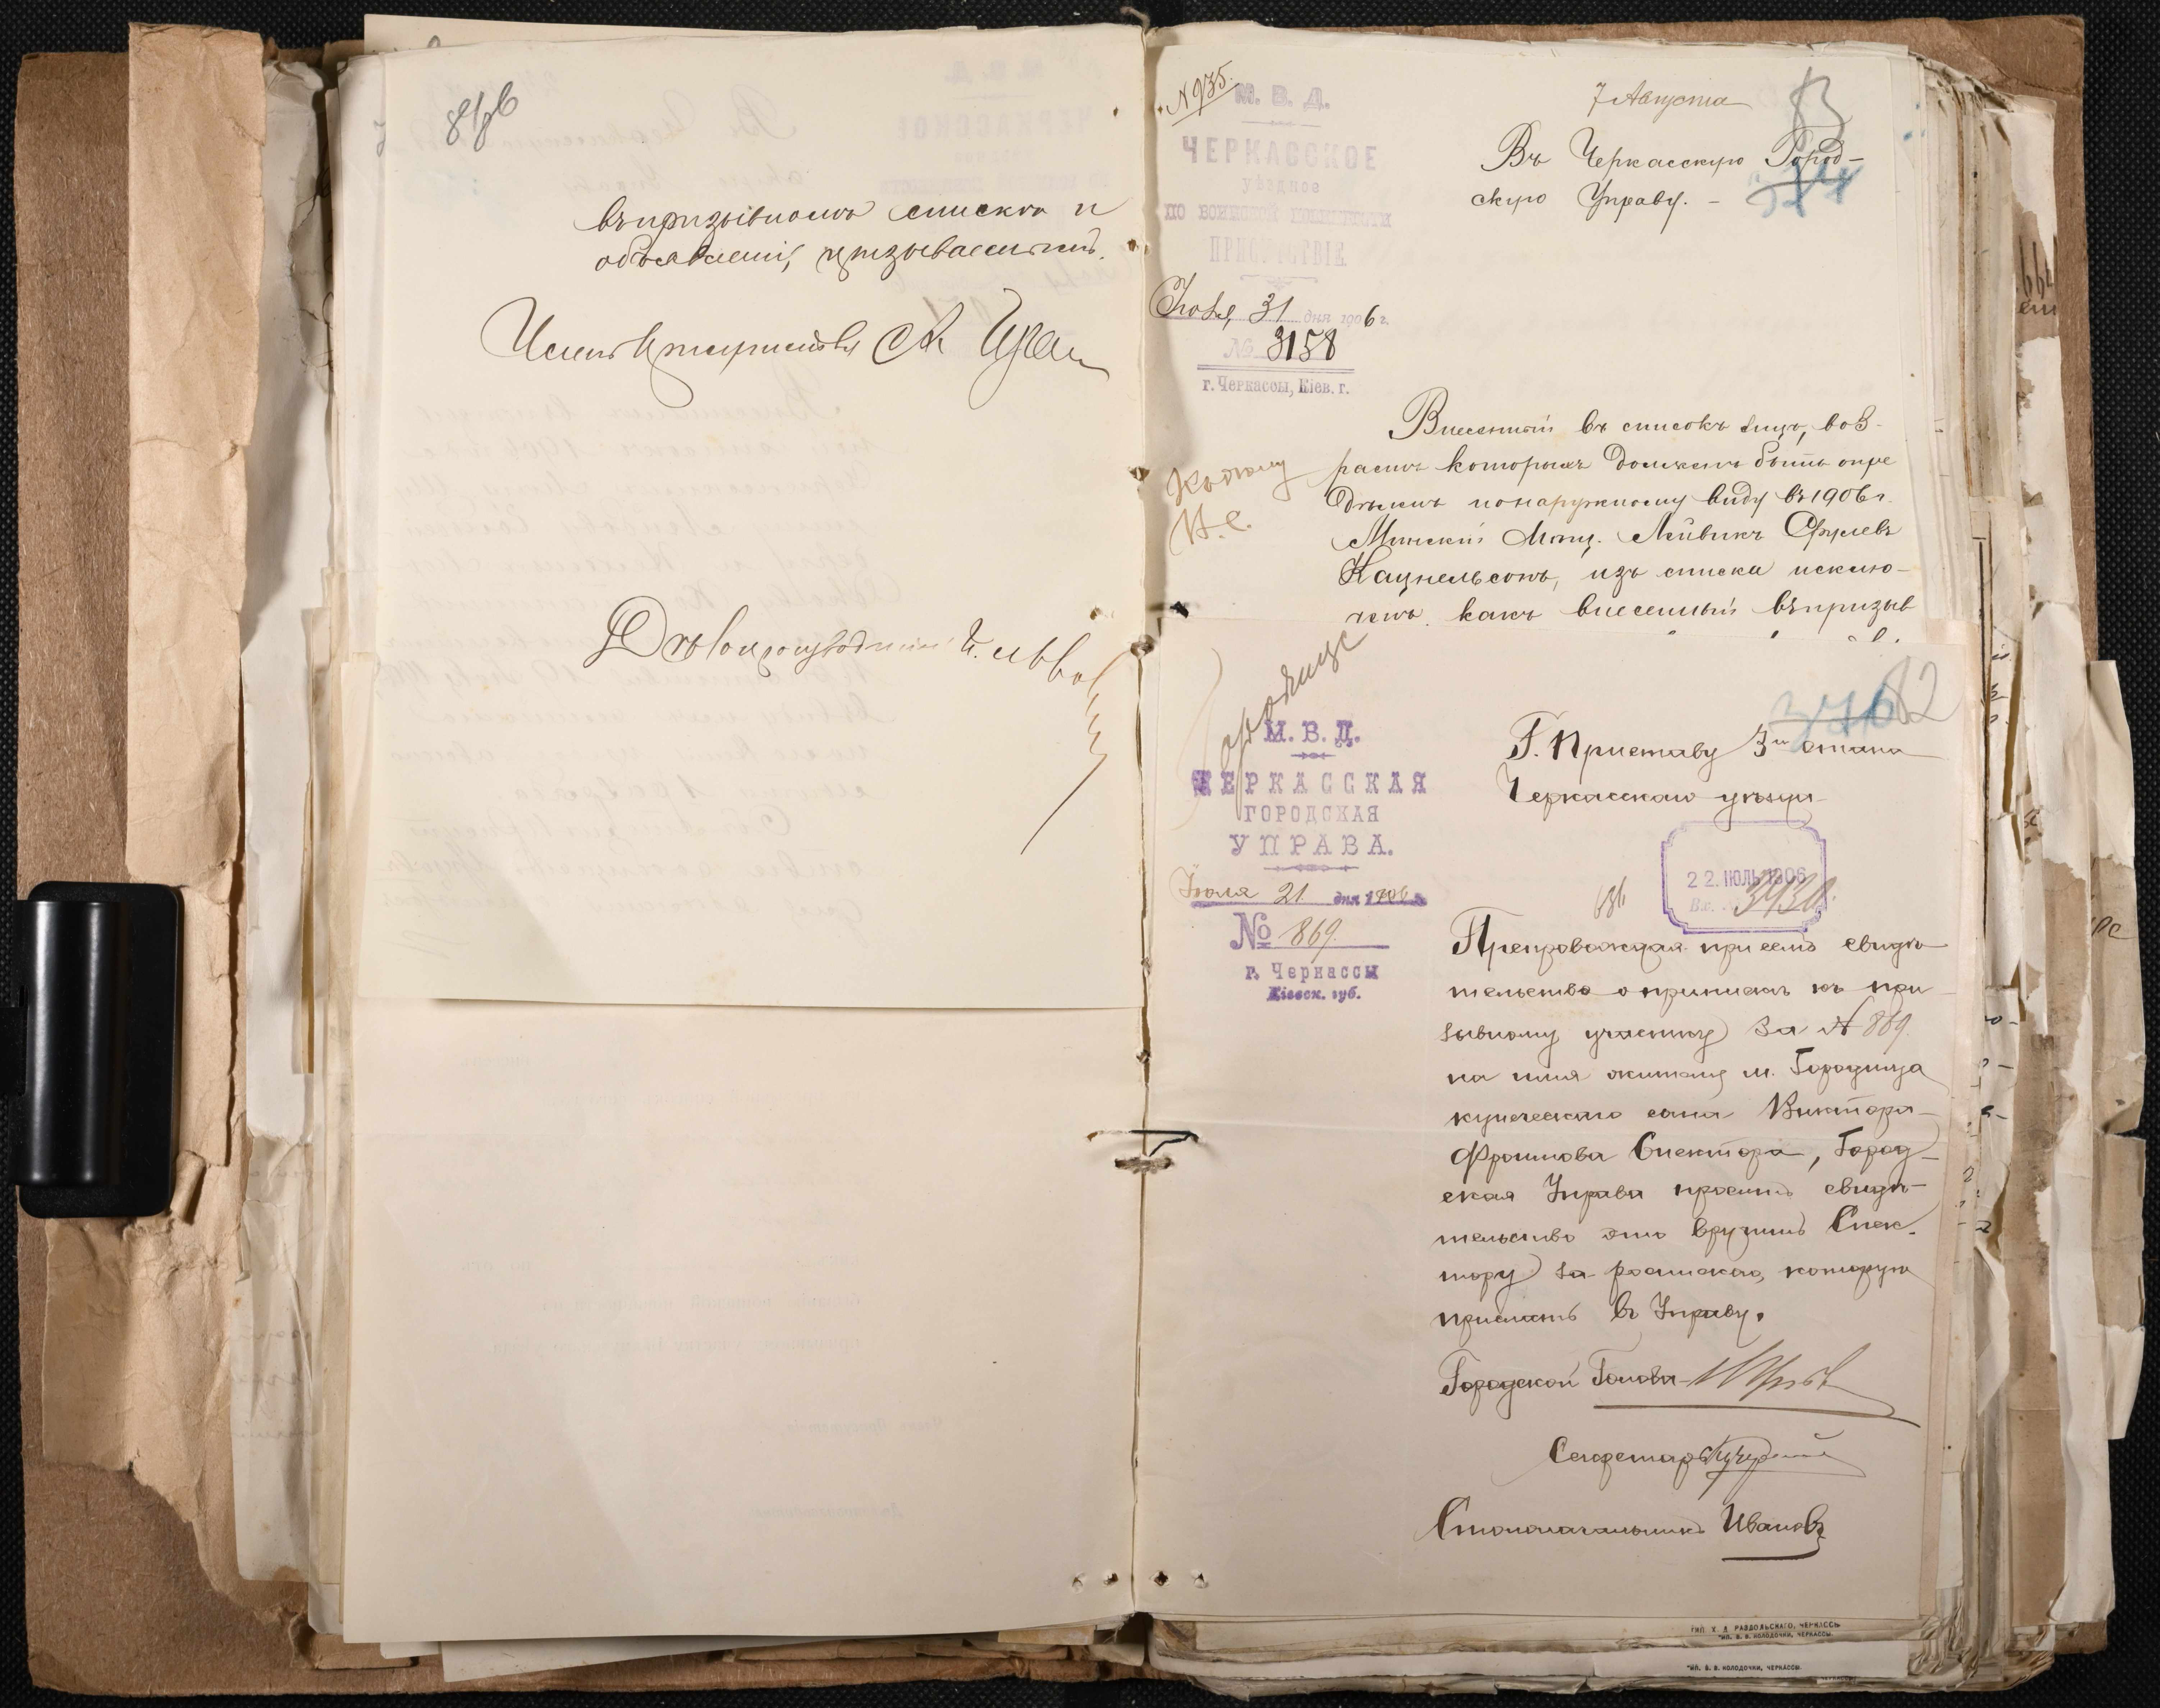 въ призывномъ списке и
объявленіи, призывается.
Членъ Присутствія
Дѣлопроизводитель
№ 935.
М. В. Д.
ЧЕРКАССКОЕ
уѣздное
ПО ВОИНСКОЙ ПОВИННОСТИ
ПРИСУТСТВІЕ
Іюля, 31 дня 1906 г.
№ 3158
г. Черкассы, Кіев. г.
7 Августа
83
Въ Черкасскую Город-
скую Управу. -
Внесенный въ списокъ лицъ, воз-
растъ которыхъ долженъ быть опре
дѣленъ по наружному виду въ 1906 г.
Минскій Мѣщ. Лейвикъ Сруlевъ
Кацнельсонъ, изъ списка исклю-
ченъ, какъ внесенный въ призыв
82
М. В. Д.
ЧЕРКАССКАЯ
ГОРОДСКАЯ
УПРАВА.
Іюля 21 дня 1906 г.
№ 869.
г. Черкассы
Кіевск. губ.
Г. Приставу 3го стана
Черкасскаго уѣзда
22. ІЮЛЬ 1906
Вх. № 3430.
Препровождая при семъ свидѣ-
тельство о припискѣ къ при-
зывному участку за № 869.
на имя жителя м. Городища
купеческаго сына Виктора
Фроимова Спектора, Город-
ская Управа проситъ свидѣ-
тельство это вручить Спек-
тору за роспискою, которую
прислать въ Управу.
Городской Голова
Секретарь
Столоначальникъ Ивановъ
ТИП. Х. Д. РАЗДОЛЬСКАГО, ЧЕРКАССЫ
ТИП. В. В. КОЛОДОЧКИ, ЧЕРКАССЫ.
ТИП. В. В. КОЛОДОЧКИ, ЧЕРКАССЫ.